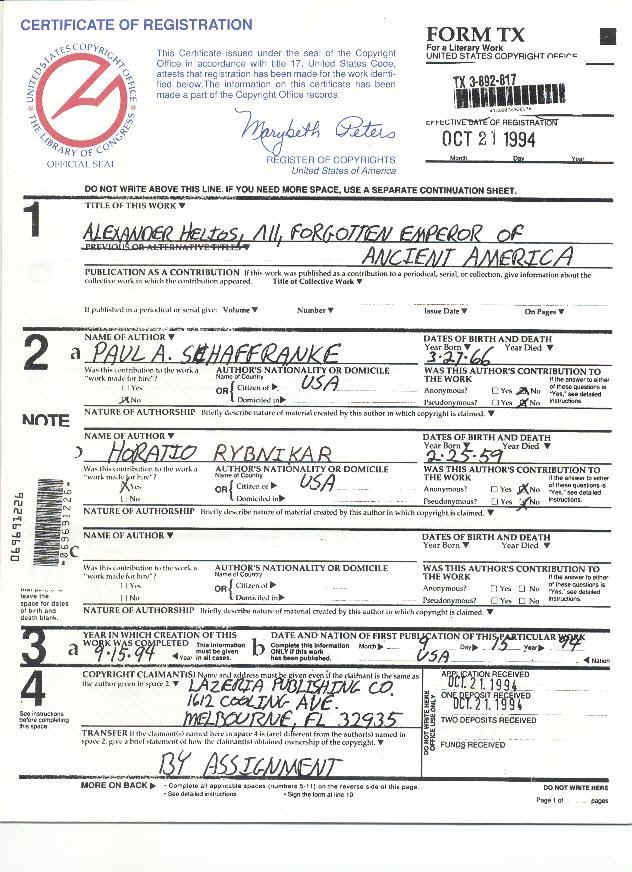 CERTIFICATE OF REGISTRATION
UNITED STATES COPYRIGHT OFFICE
THE LIBRARY OF CONGRESS
OFFICIAL SEAL
This Certificate issued under the seal of the Copyright
Office in accordance with title 17, United States Code,
attests that registration has been made for the work identi-
fied below. The information on this certificate has been
made a part of the Copyright Office records.
Marybeth Peters
REGISTER OF COPYRIGHTS
United States of America
FORM TX
For a Literary Work
UNITED STATES COPYRIGHT OFFICE
TX 3-892-817
EFFECTIVE DATE OF REGISTRATION
OCT 21 1994
Month Day Year
DO NOT WRITE ABOVE THIS LINE. IF YOU NEED MORE SPACE, USE A SEPARATE CONTINUATION SHEET.
1
TITLE OF THIS WORK ▼
ALEXANDER HELIOS, FORGOTTEN EMPEROR OF
ANCIENT AMERICA
PREVIOUS OR ALTERNATIVE TITLES ▼
PUBLICATION AS A CONTRIBUTION If this work was published as a contribution to a periodical, serial, or collection, give information about the
collective work in which the contribution appeared. Title of Collective Work ▼
If published in a periodical or serial give: Volume ▼ Number ▼ Issue Date ▼ On Pages ▼
2
NAME OF AUTHOR ▼
a PAUL A. SCHAFFRANKE
DATES OF BIRTH AND DEATH
Year Born ▼ Year Died ▼
3-27-66
Was this contribution to the work a
"work made for hire"?
☐ Yes
☒ No
AUTHOR'S NATIONALITY OR DOMICILE
Name of Country
OR { Citizen of ▶ USA
Domiciled in ▶
WAS THIS AUTHOR'S CONTRIBUTION TO
THE WORK
Anonymous? ☐ Yes ☒ No
Pseudonymous? ☐ Yes ☒ No
If the answer to either
of these questions is
"Yes," see detailed
instructions.
NATURE OF AUTHORSHIP Briefly describe nature of material created by this author in which copyright is claimed. ▼
NOTE
NAME OF AUTHOR ▼
HORATIO RYBNIKAR
DATES OF BIRTH AND DEATH
Year Born ▼ Year Died ▼
2-25-59
Was this contribution to the work a
"work made for hire"?
☒ Yes
☐ No
AUTHOR'S NATIONALITY OR DOMICILE
Name of Country
OR { Citizen of ▶ USA
Domiciled in ▶
WAS THIS AUTHOR'S CONTRIBUTION TO
THE WORK
Anonymous? ☐ Yes ☒ No
Pseudonymous? ☐ Yes ☒ No
If the answer to either
of these questions is
"Yes," see detailed
instructions.
NATURE OF AUTHORSHIP Briefly describe nature of material created by this author in which copyright is claimed. ▼
06969122б
*069691226*
NAME OF AUTHOR ▼
c
DATES OF BIRTH AND DEATH
Year Born ▼ Year Died ▼
Was this contribution to the work a
"work made for hire"?
☐ Yes
☐ No
AUTHOR'S NATIONALITY OR DOMICILE
Name of Country
OR { Citizen of ▶
Domiciled in ▶
WAS THIS AUTHOR'S CONTRIBUTION TO
THE WORK
Anonymous? ☐ Yes ☐ No
Pseudonymous? ☐ Yes ☐ No
If the answer to either
of these questions is
"Yes," see detailed
instructions.
leave the
space for dates
of birth and
death blank.
NATURE OF AUTHORSHIP Briefly describe nature of material created by this author in which copyright is claimed. ▼
3
a
YEAR IN WHICH CREATION OF THIS
WORK WAS COMPLETED
9-15-94
This information
must be given
◀ Year in all cases.
b
DATE AND NATION OF FIRST PUBLICATION OF THIS PARTICULAR WORK
Complete this information
ONLY if this work
has been published.
Month ▶ 9 Day ▶ 15 Year ▶ 94
USA ◀ Nation
4
See instructions
before completing
this space.
COPYRIGHT CLAIMANT(S) Name and address must be given even if the claimant is the same as
the author given in space 2. ▼
LAZERIA PUBLISHING CO.
1612 COOLING AVE.
MELBOURNE, FL 32935
TRANSFER If the claimant(s) named here in space 4 is (are) different from the author(s) named in
space 2, give a brief statement of how the claimant(s) obtained ownership of the copyright. ▼
BY ASSIGNMENT
DO NOT WRITE HERE
OFFICE USE ONLY
APPLICATION RECEIVED
OCT. 21. 1994
ONE DEPOSIT RECEIVED
OCT. 21. 1994
TWO DEPOSITS RECEIVED
FUNDS RECEIVED
MORE ON BACK ▶ • Complete all applicable spaces (numbers 5-11) on the reverse side of this page.
• See detailed instructions. • Sign the form at line 10.
DO NOT WRITE HERE
Page 1 of pages